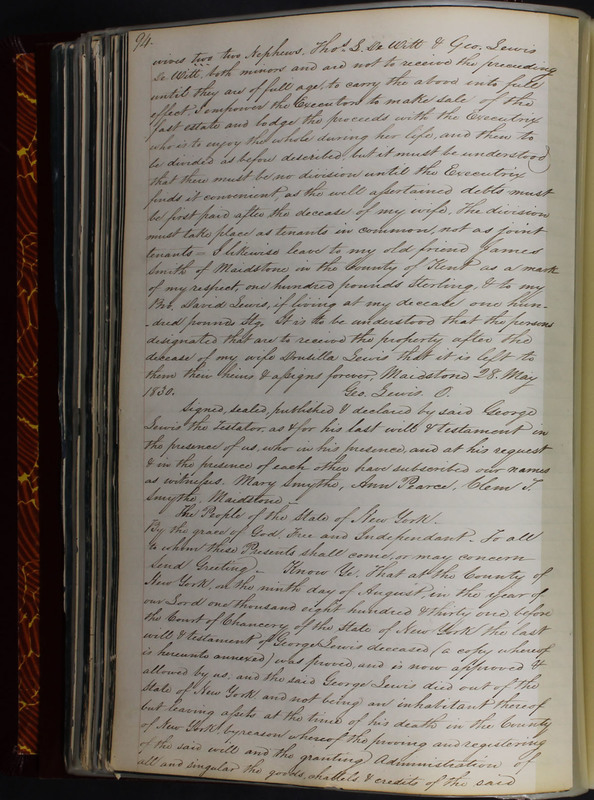 94.
vives two two Nephews, Thos. S. De Witt & Geo. Lewis
De Witt, both minors and are not to receive the preceding
until they are of full age, to carry the above into full
effect, I empower the Executors to make sale of the
fast estate and lodge the proceeds with the Executrix
who is to enjoy the whole during her life, and then to
be divided as before described, but it must be understood
that there must be no division until the Executrix
finds it convenient, as the well assertained debts must
be first paid after the decease of my wife, the division
must take place as tenants in common, not as joint
tenants — I likewise leave to my old friend James
Smith of Maidstone in the County of Kent as a mark
of my respect, one hundred pounds Sterling, & to my
Bro. David Lewis, if living at my decease one hun-
-dred pounds Stg. It is to be understood that the persons
designated that are to receive the property after the
decease of my wife Drusilla Lewis that it is left to
them their heirs & assigns forever, Maidstone 28. May
1830. Geo. Lewis. O.
Signed, sealed, published & declared by said George
Lewis the Testator, as & for his last will & testament in
the presence of us, who in his presence, and at his request
& in the presence of each other have subscribed our names
as witnesses. Mary Smythe, Ann Pearce, Clem T.
Smythe, Maidstone —
The People of the State of New York.
By the grace of God, Free and Independent. To all
to whom these Presents shall come, or may concern
Send Greeting — Know Ye, That at the County of
New York, on the ninth day of August in the year of
our Lord one thousand eight hundred & thirty one before
the Court of Chancery of the State of New York the last
will & testament of George Lewis deceased, (a copy whereof
is hereunto annexed) was proved, and is now approved &
allowed by us, and the said George Lewis died out of the
State of New York, and not being an inhabitant thereof
but leaving assets at the time of his death in the County
of New York, by reason whereof the proving and registering
of the said will and the granting Administration of
all and singular the goods, chattels & credits of the said